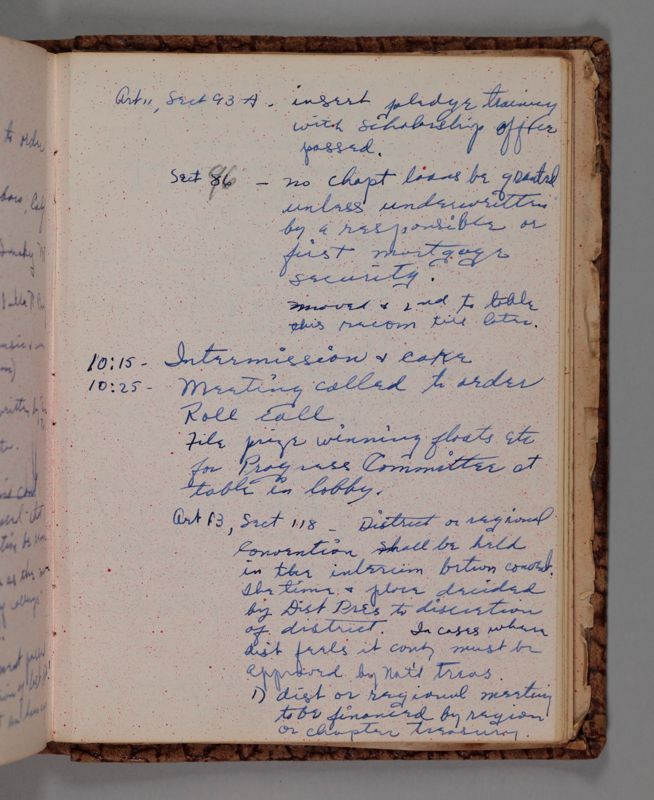 to order
Art 11, Sect 93 A - insert pledge training
with scholarship office
passed.
Sect 86 96 - no chapt loans be granted
unless underwritten
by a responsible or
first mortgage
security.
moved & 2nd to table
this recom till later.
10:15 - Intermission & coke
10:25 - Meeting called to order
Roll Call
File prize winning floats etc
for Progress Committee at
table in lobby.
Art 13, Sect 118 - District or regional
Convention shall be held
in the interim betwn convent.
The time & place decided
by Dist Pres to discretion
of district. In cases where
dist feels it must be
approved by Nat'l Treas.
1) dist or regional meeting
to be financed by region
or chapter treasury.